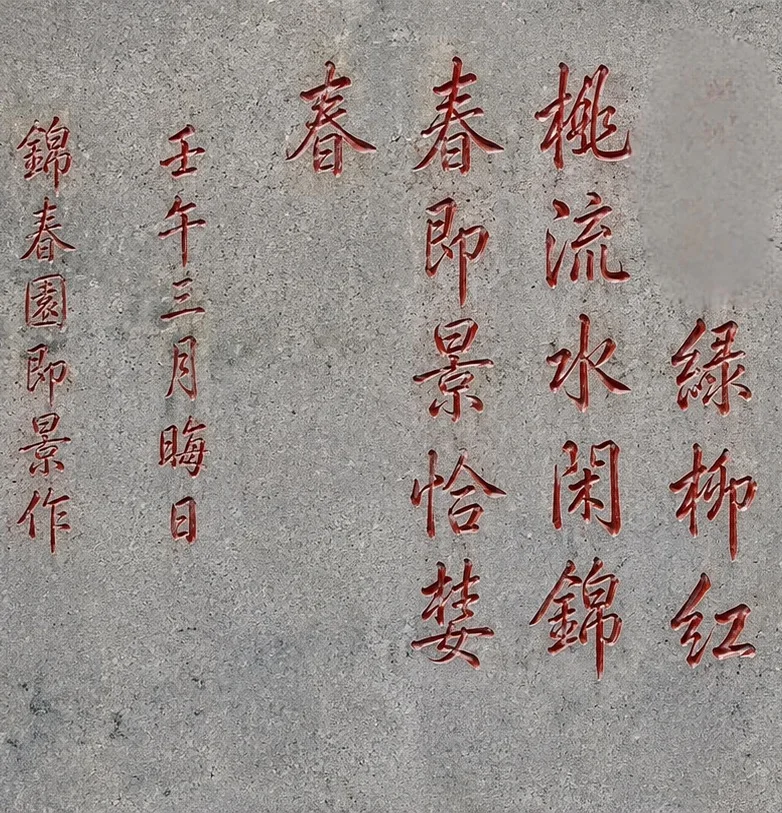 綠柳紅
桃流水閑錦
春即景恰婪
春
壬午三月晦日
錦春園即景作